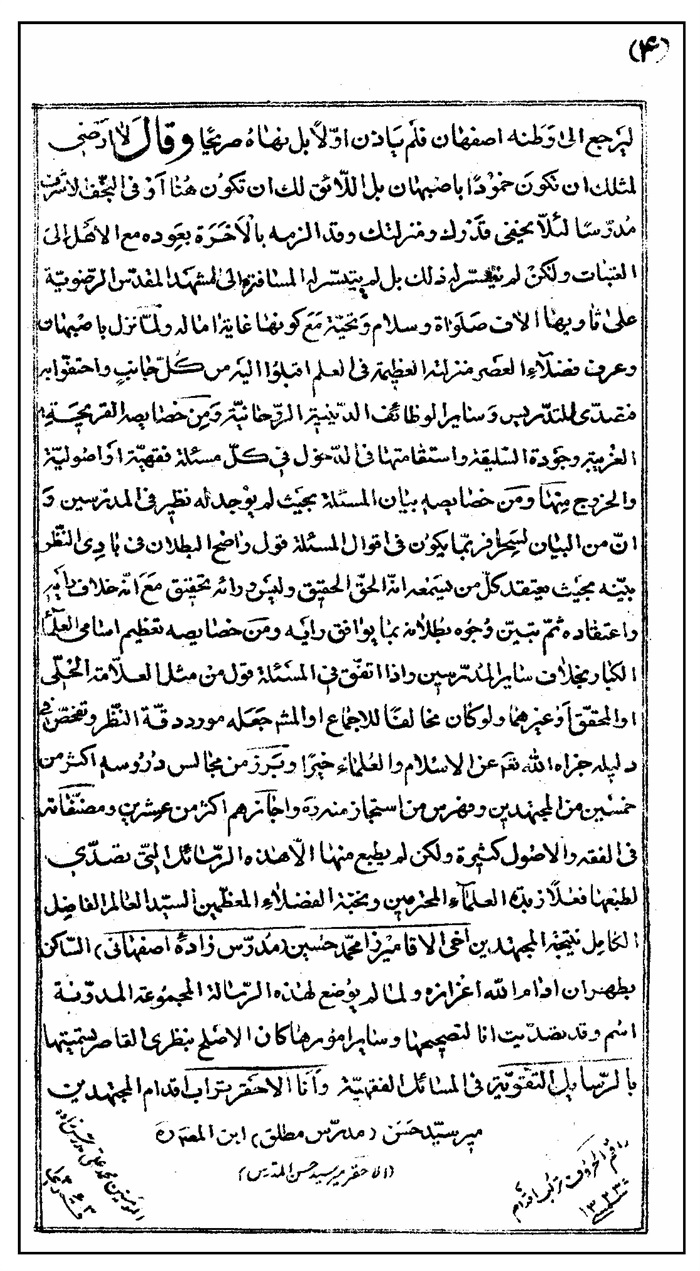 (۴)
ليرجع الى وطنه اصفهان فلم ياذن اولًا بل نهاه صريحًا وقال لا ارضى
لمثلك ان تكون خمودًا باصبهان بل اللائق لك ان تكون هنا او فى النجف الاشرف
مدرّسًا لئلّا يخفى قدرك ومنزلتك وقد الزمه بالاخرة بعوده مع الاهل الى
العتبات ولكن لم يتيسّر له ذلك بل لم يتيسر له المسافرة الى المشهد المقدس الرضوية
على ثاويها الاف صلواة وسلام وتحيّة مع كونها غاية اماله ولمّا نزل باصبهان
وعرف فضلاء العصر منزلته العظيمة فى العلم اقبلوا اليه من كلّ جانب واحتفوا به
فتصدّى للتدريس وساير الوظائف الدينية الروحانية ومن خصايصه القريحة
الغريبة وجودة السليقة واستقامتها فى الدخول فى كلّ مسئلة فقهيّة او اصولية
والخروج منها ومن خصايصه بيان المسئلة بحيث لم يوجد له نظير فى المدرسين و
انّ من البيان لسحرا فربّما يكون فى اقوال المسئلة قول واضح البطلان فى بادى النظر
يبيّنه بحيث يعتقد كلّ من يسمعه انّه الحق الحقيق وليس ورائه تحقيق مع انّه خلاف رأيه
واعتقاده ثمّ يتبيّن وجوه بطلانه بما يوافق رايه ومن خصايصه تعظيم اسامى العلماء
الكبار بخلاف ساير المدرّسين واذا اتفق فى المسئلة قول من مثل العلامة الحلّى
او المحقق او غيرهما ولو كان مخالفًا للاجماع او المشهـ جعله مورد دقة النظر وتفحّص فى
دليله جزاه الله تعـ عن الاسلام والعلماء خيرًا وتبرّز من مجالس دروسه اكثر من
خمسين من المجتهدين وفهرس من استجاز منه ره واجازهم اكثر من عشرين ومصنّفاته
فى الفقه والاصول كثيرة ولكن لم يطبع منها الّا هذه الرسائل التى تصدّى
لطبعها فعلًا زبدة العلماء المحترمين ونخبة الفضلاء المعظمين السيد العالم الفاضل
الكامل نتيجة المجتهدين اخى الاقا ميرزا محمد حسين (مدرّس زادۀ اصفهانى) الساكن
بطهران ادام الله اعزازه ولما لم يوضع لهذه الرسالة المجموعة المدوّنة
اسم وقد تصدّيت انا لتصحيحها وساير امورها كان الاصلح بنظرى القاصر تسميتها
بالرسايل التقويّة فى المسائل الفقهيّة وأنا الاحقر تراب اقدام المجتهدين
مير سيّد حسن (مدرّس مطلق) ابن المصـ ره
(الاحقر مير سيد حسن المدرس)
راقم الحروف تراب اقدام
۱۳۲۳